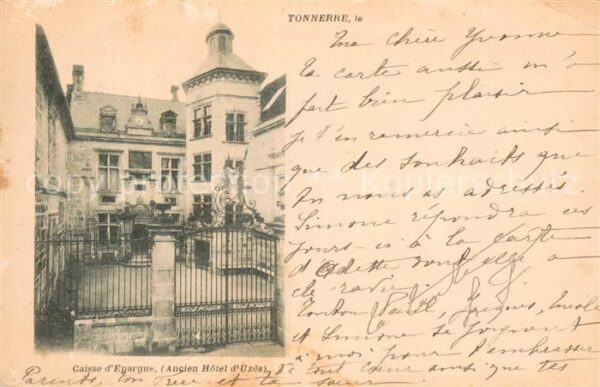 TONNERRE, le
Ma chère Yvonne
Ta carte aussi m'a
fait bien plaisir
je t'en remercie ainsi
que des souhaits que
tu nous as adressés.
Simone répondra ces
jours-ci à la carte
d'Odette dont elle a
été ravie.
Tonton Jacques,
et Simone se joignent
à moi pour t'embrasser
de tout cœur ainsi que tes
Parents, ton et ta sœur
Caisse d'Epargne, (Ancien Hôtel d'Uzès)
copyright protection Kopierschutz